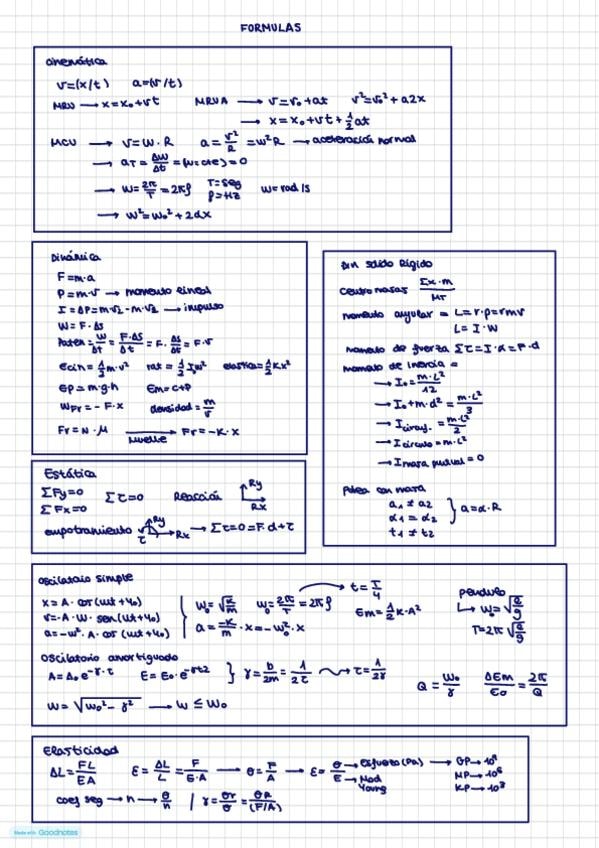 FORMULAS
Cinemática
v=(x/t) a=(v/t)
MRU → x=x₀+vt MRUA → v=v₀+at v²=v₀²+a2x
→ x=x₀+vt+½at
MCU → v=w·R a=v²/R=w²R → aceleración normal
→ aT=Δw/Δt=(w=cte)=0
→ w=2π/T=2πf T=seg f=Hz w=rad/s
→ w²=w₀²+2αx
Dinámica
F=m·a
P=m·v → momento lineal
I=ΔP=m·v₂-m·v₂ → impulso
W=F·ΔS
Poten=W/Δt=F·ΔS/Δt=F·ΔS/Δt=F·v
Ecin=½m·v² rot=½Iw² elástica=½Kx²
Ep=m·g·h Em=C+P
WFr=-F·x densidad=m/v
Fr=N·μ → muelle Fr=-K·x
Din sólido Rígido
Centro masas Σx·m/MT
momento angular = L=r·p=rmv
L=I·w
momento de fuerza Στ=I·α=F·d
momento de inercia =
→ I₀=m·L²/12
→ I₀+m·d²=m·L²/3
→ I circunf.=m·L²/2
→ I círculo=m·L²
→ I masa puntual=0
Polea con masa
a₁≠a₂
α₁=α₂ } a=α·R
t₁≠t₂
Estática
ΣFy=0 Στ=0 Reacción Ry
ΣFx=0 Rx
empotramiento τ Ry Rx → Στ=0=F·d+τ
Oscilatorio simple
x=A·cos(wt+φ₀)
v=-A·w·sen(wt+φ₀)
a=-w²·A·cos(wt+φ₀)
w₀=√(K/m) w₀=2π/T=2πf → t=T/4
a=-K/m·x=-w₀²·x Em=½K·A²
Péndulo
↳ w₀=√
T=2π√
Oscilatorio amortiguado
A=A₀e^-γ·t E=E₀·e^-γt2 } γ=b/2m=1/2τ → τ=1/2γ
Q=w₀/γ ΔEm/E₀=2π/Q
w=√(w₀²-γ²) → w≤w₀
Elasticidad
ΔL=FL/EA ε=ΔL/L=F/E·A → σ=F/A → ε=σ/E → Esfuerzo(Pa) → GP→10⁹
→ Mod Young MP→10⁶
KP→10³
coef seg → n → σ/n | γ=σr/σ=σR/(F/A)
Made with Goodnotes